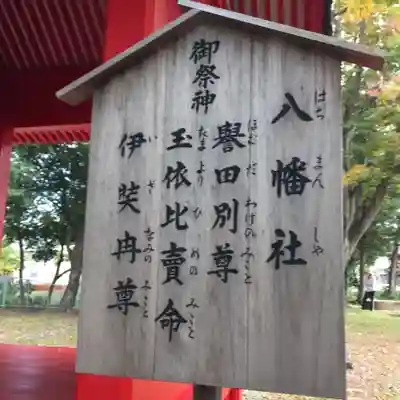 八幡社
はちまんしゃ
御祭神
譽田別尊
ほむだわけのみこと
玉依比賣命
たまよりひめのみこと
伊奘冉尊
いざなみのみこと